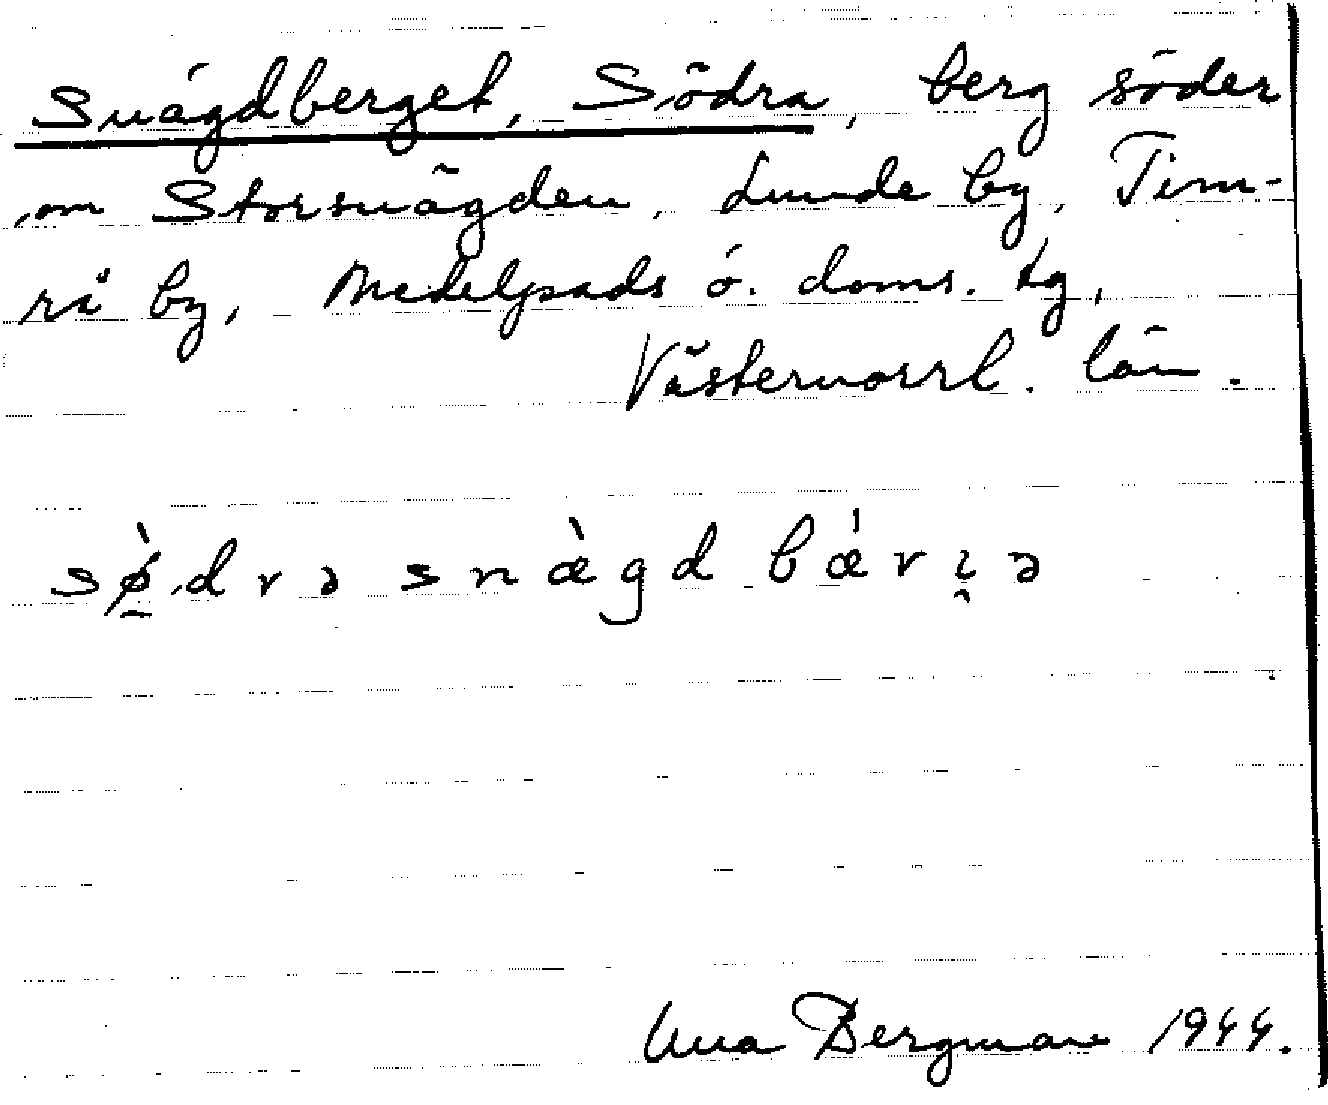 Snägdberget, Södra, berg söder
om Storsnägden, Lunde by, Tim-
rå by, Medelpads ö. doms. tg,
Västernorrl. län.
sø̀drə snæ̀gd bǽrɩ̯ə
Una Bergman 1944.